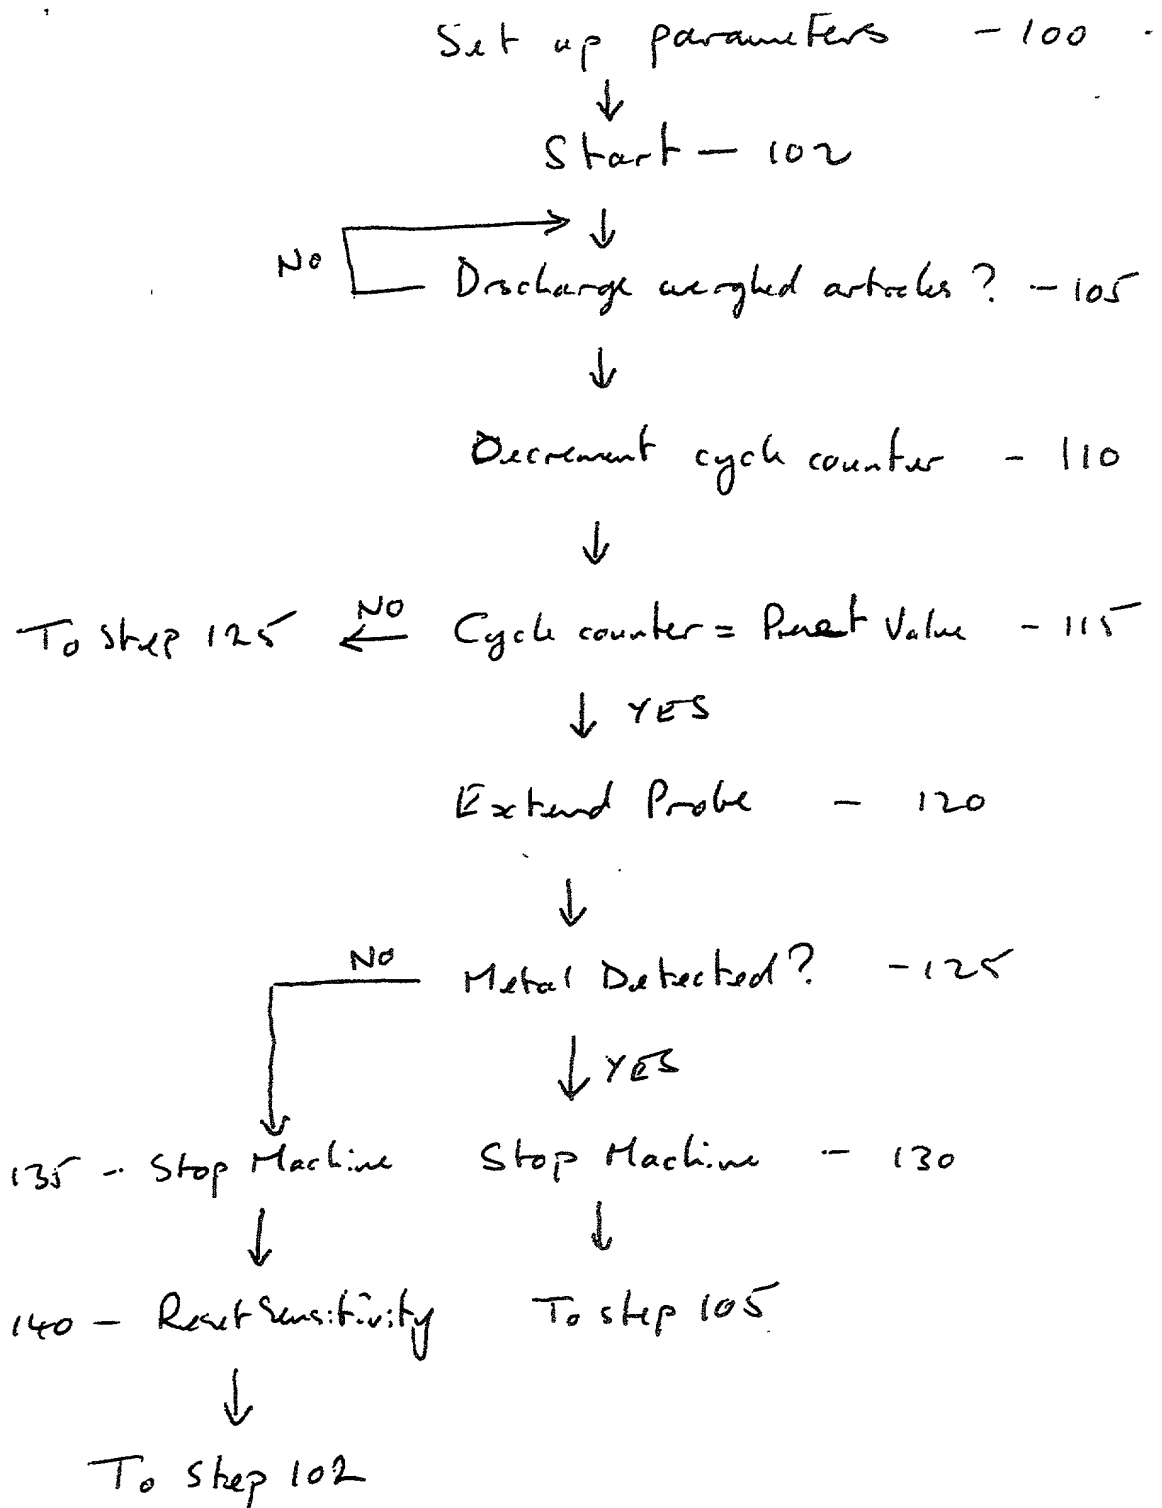 Set up parameters - 100
Start - 102
NO
Discharge weighed articles? - 105
Decrement cycle counter - 110
To Step 125
NO
Cycle counter = Preset Value - 115
YES
Extend Probe - 120
NO
Metal Detected? - 125
YES
135 - Stop Machine
Stop Machine - 130
140 - Reset Sensitivity
To step 105
To step 102